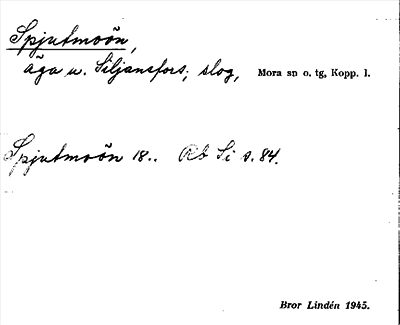 Spjutmoön,
äga u. Siljansfors; slog, Mora sn o. tg, Kopp. l.
Spjutmoön 18.. Rb Si s. 84.
Bror Lindén 1945.